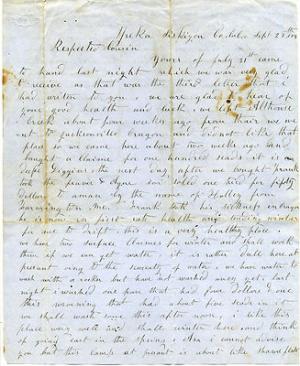 Yreka Siskiyou Co Cala Sept 28th
Respected Cousin
Yours of July 21st came
to hand last night which we was very glad
to receive as that was the third letter that I
had written to you we are glad to hear of
your good health and luck we left Althouse
Creek about four weeks ago from thair we we
ent to Jacksonville Oragon and did not like that
place so we came here about two weeks ago and
bought a claime for one hundred it is
Diggins the next day after we bought Frank
took the feaver & Ague sold one third for fifty
Dollars to a man by the name of Holley from
Farmington Frank took his sickness in Oragon
he is now in first rate health are winter
for me to Drift this is a very healthy place
we have two surface claimes for winter and shall work
them if we can get water it is rather dull here at
present owing to the scearcity of water we have water to
work with a rocker but have not washed any yet last
night I washed one pan that had four dollars & one
this morning that had about five in it
we shall wash some this after noon, I like this
place very well and shall winter here and think
of going east in the Spring I cannot advise
you but this camp at present is about like